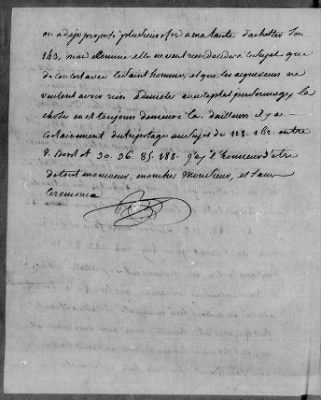 on a deja proposé plusieurs fois a ma tante d'achetter son
143, mon
elle ne veut rien decider a ce sujet que
de concert avec le saint homme, et que les acquereurs ne
veulent avoir rien a demeler avec tel personnage, la
chose en est toujours demeurée la. d'ailleurs il y a
certainement du tripotage au sujet du 118. 162. entre
et 30. 36. 85. 188. j'ay l'honneur d'etre
de tout mon coeur, mon cher Monsieur, et sans
ceremonie